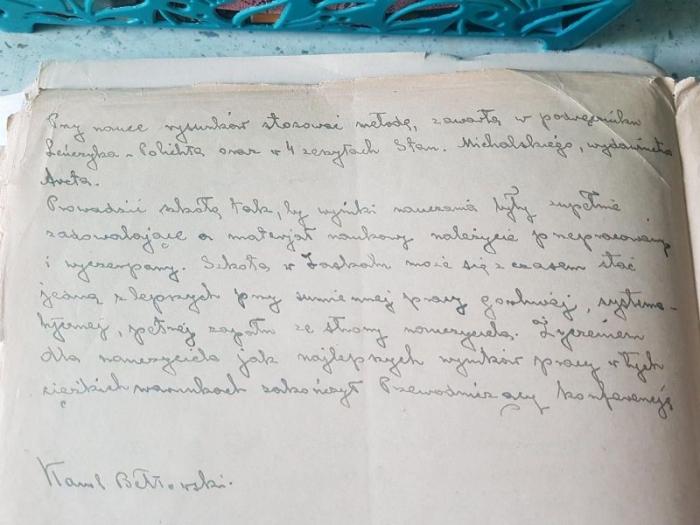 Przy nauce rysunków stosować metodę, zawartą w podręczniku
Leńczyka - Polichta oraz w 4 zeszytach Stan. Michalskiego, wydawnictwa
Arcta.
Prowadzić szkołę tak, by wyniki nauczania były zupełnie
zadowalające a materjał naukowy należycie przepracowany
i wyczerpany. Szkoła w może się z czasem stać
jedną z lepszych przy sumiennej pracy gorliwej, systema-
tycznej, pełnej zapału ze strony nauczyciela. Życzeniem
dla nauczyciela jak najlepszych wyników pracy w tych
ciężkich warunkach zakończył Przewodniczący konferencję
Kamil